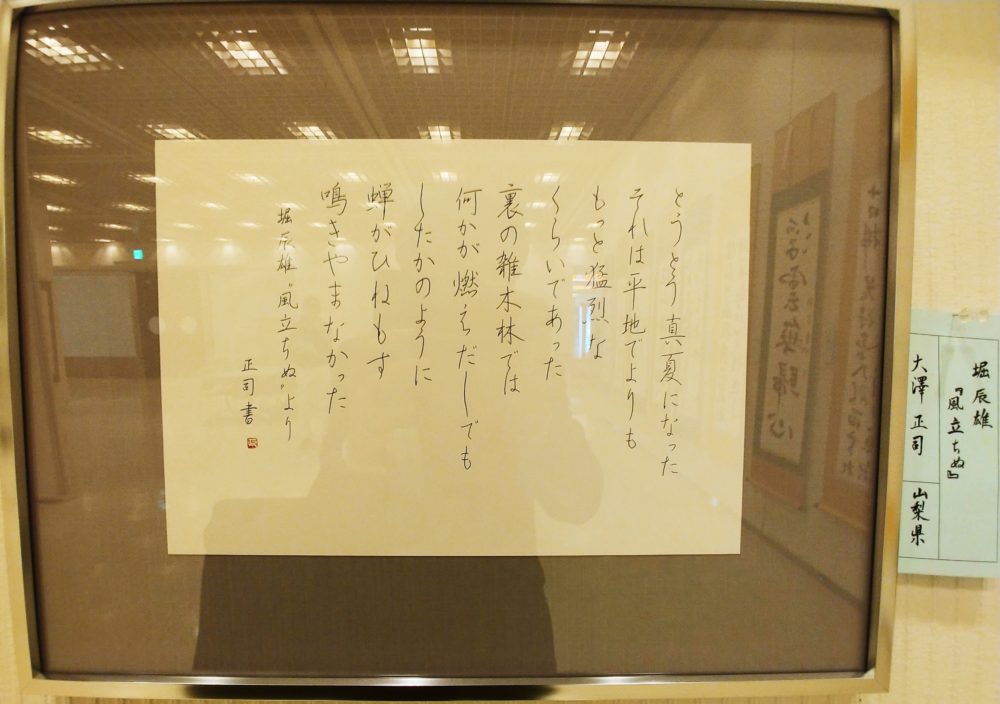 とうとう真夏になった
それは平地でよりも
もっと猛烈な
くらいであった
裏の雑木林では
何かが燃えだしでも
したかのように
蝉がひねもす
鳴きやまなかった
堀辰雄 “風立ちぬ” より
正司書
堀辰雄
『風立ちぬ』
大澤 正司
山梨県